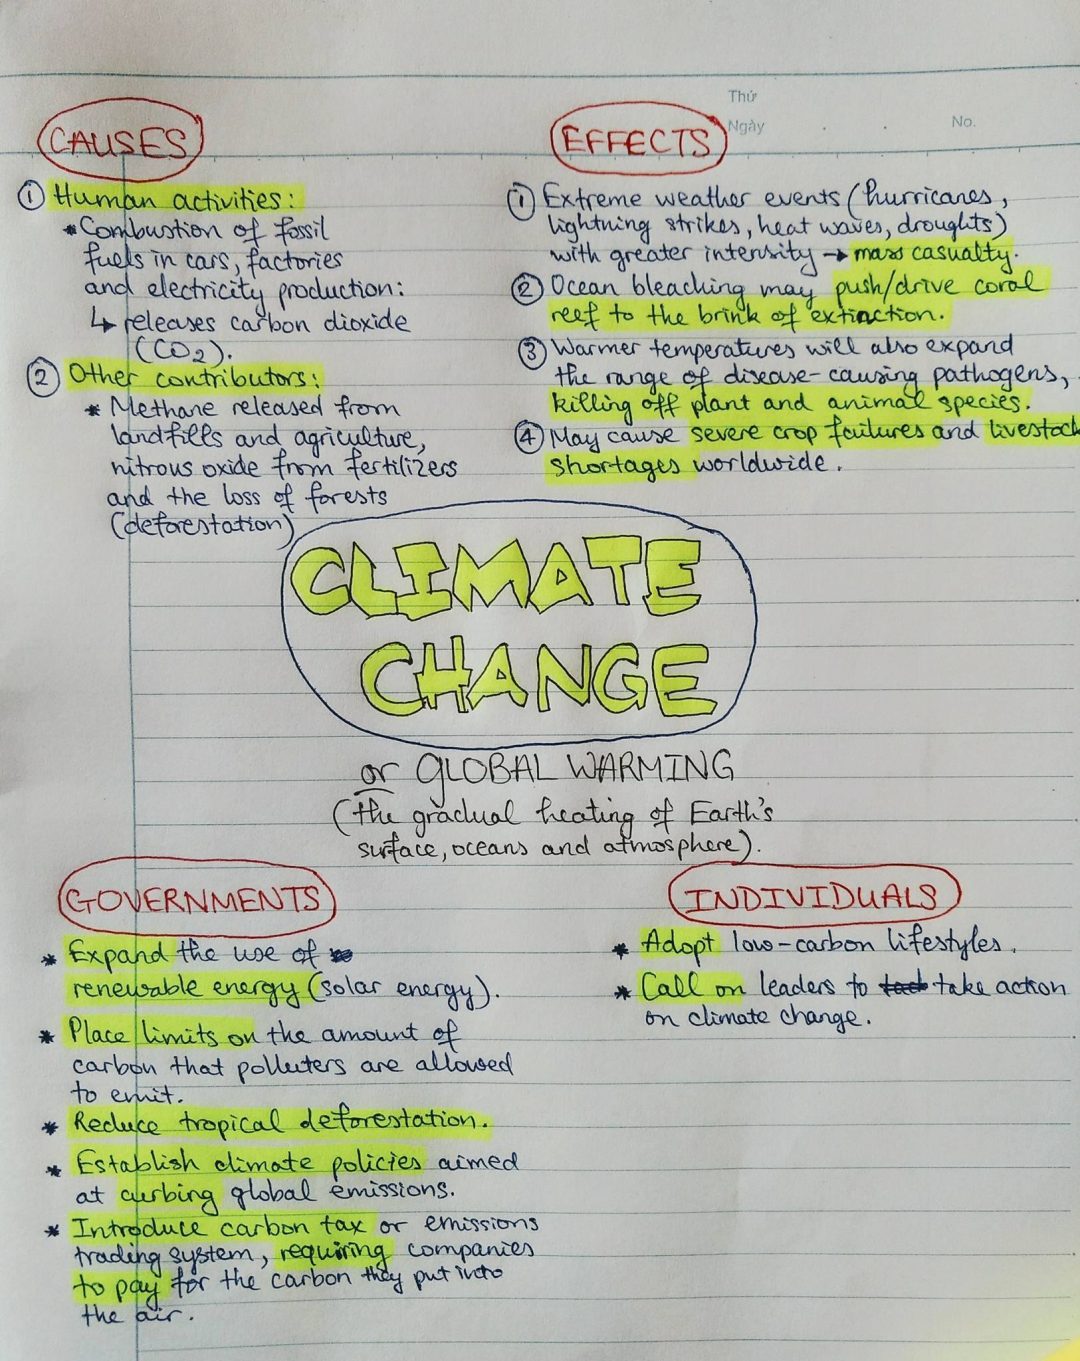 Thứ
Ngày
No.
CAUSES
① Human activities:
* Combustion of fossil
fuels in cars, factories
and electricity production:
↳ releases carbon dioxide
(CO2).
② Other contributors:
* Methane released from
landfills and agriculture,
nitrous oxide from fertilizers
and the loss of forests
(deforestation)
EFFECTS
① Extreme weather events (hurricanes,
lightning strikes, heat waves, droughts)
with greater intensity → mass casualty.
② Ocean bleaching may push/drive coral
reef to the brink of extinction.
③ Warmer temperatures will also expand
the range of disease-causing pathogens,
killing off plant and animal species.
④ May cause severe crop failures and livestock
shortages worldwide.
CLIMATE
CHANGE
or GLOBAL WARMING
(the gradual heating of Earth's
surface, oceans and atmosphere).
GOVERNMENTS
* Expand the use of
renewable energy (solar energy).
* Place limits on the amount of
carbon that polluters are allowed
to emit.
* Reduce tropical deforestation.
* Establish climate policies aimed
at curbing global emissions.
* Introduce carbon tax or emissions
trading system, requiring companies
to pay for the carbon they put into
the air.
INDIVIDUALS
* Adopt low-carbon lifestyles.
* Call on leaders to take action
on climate change.